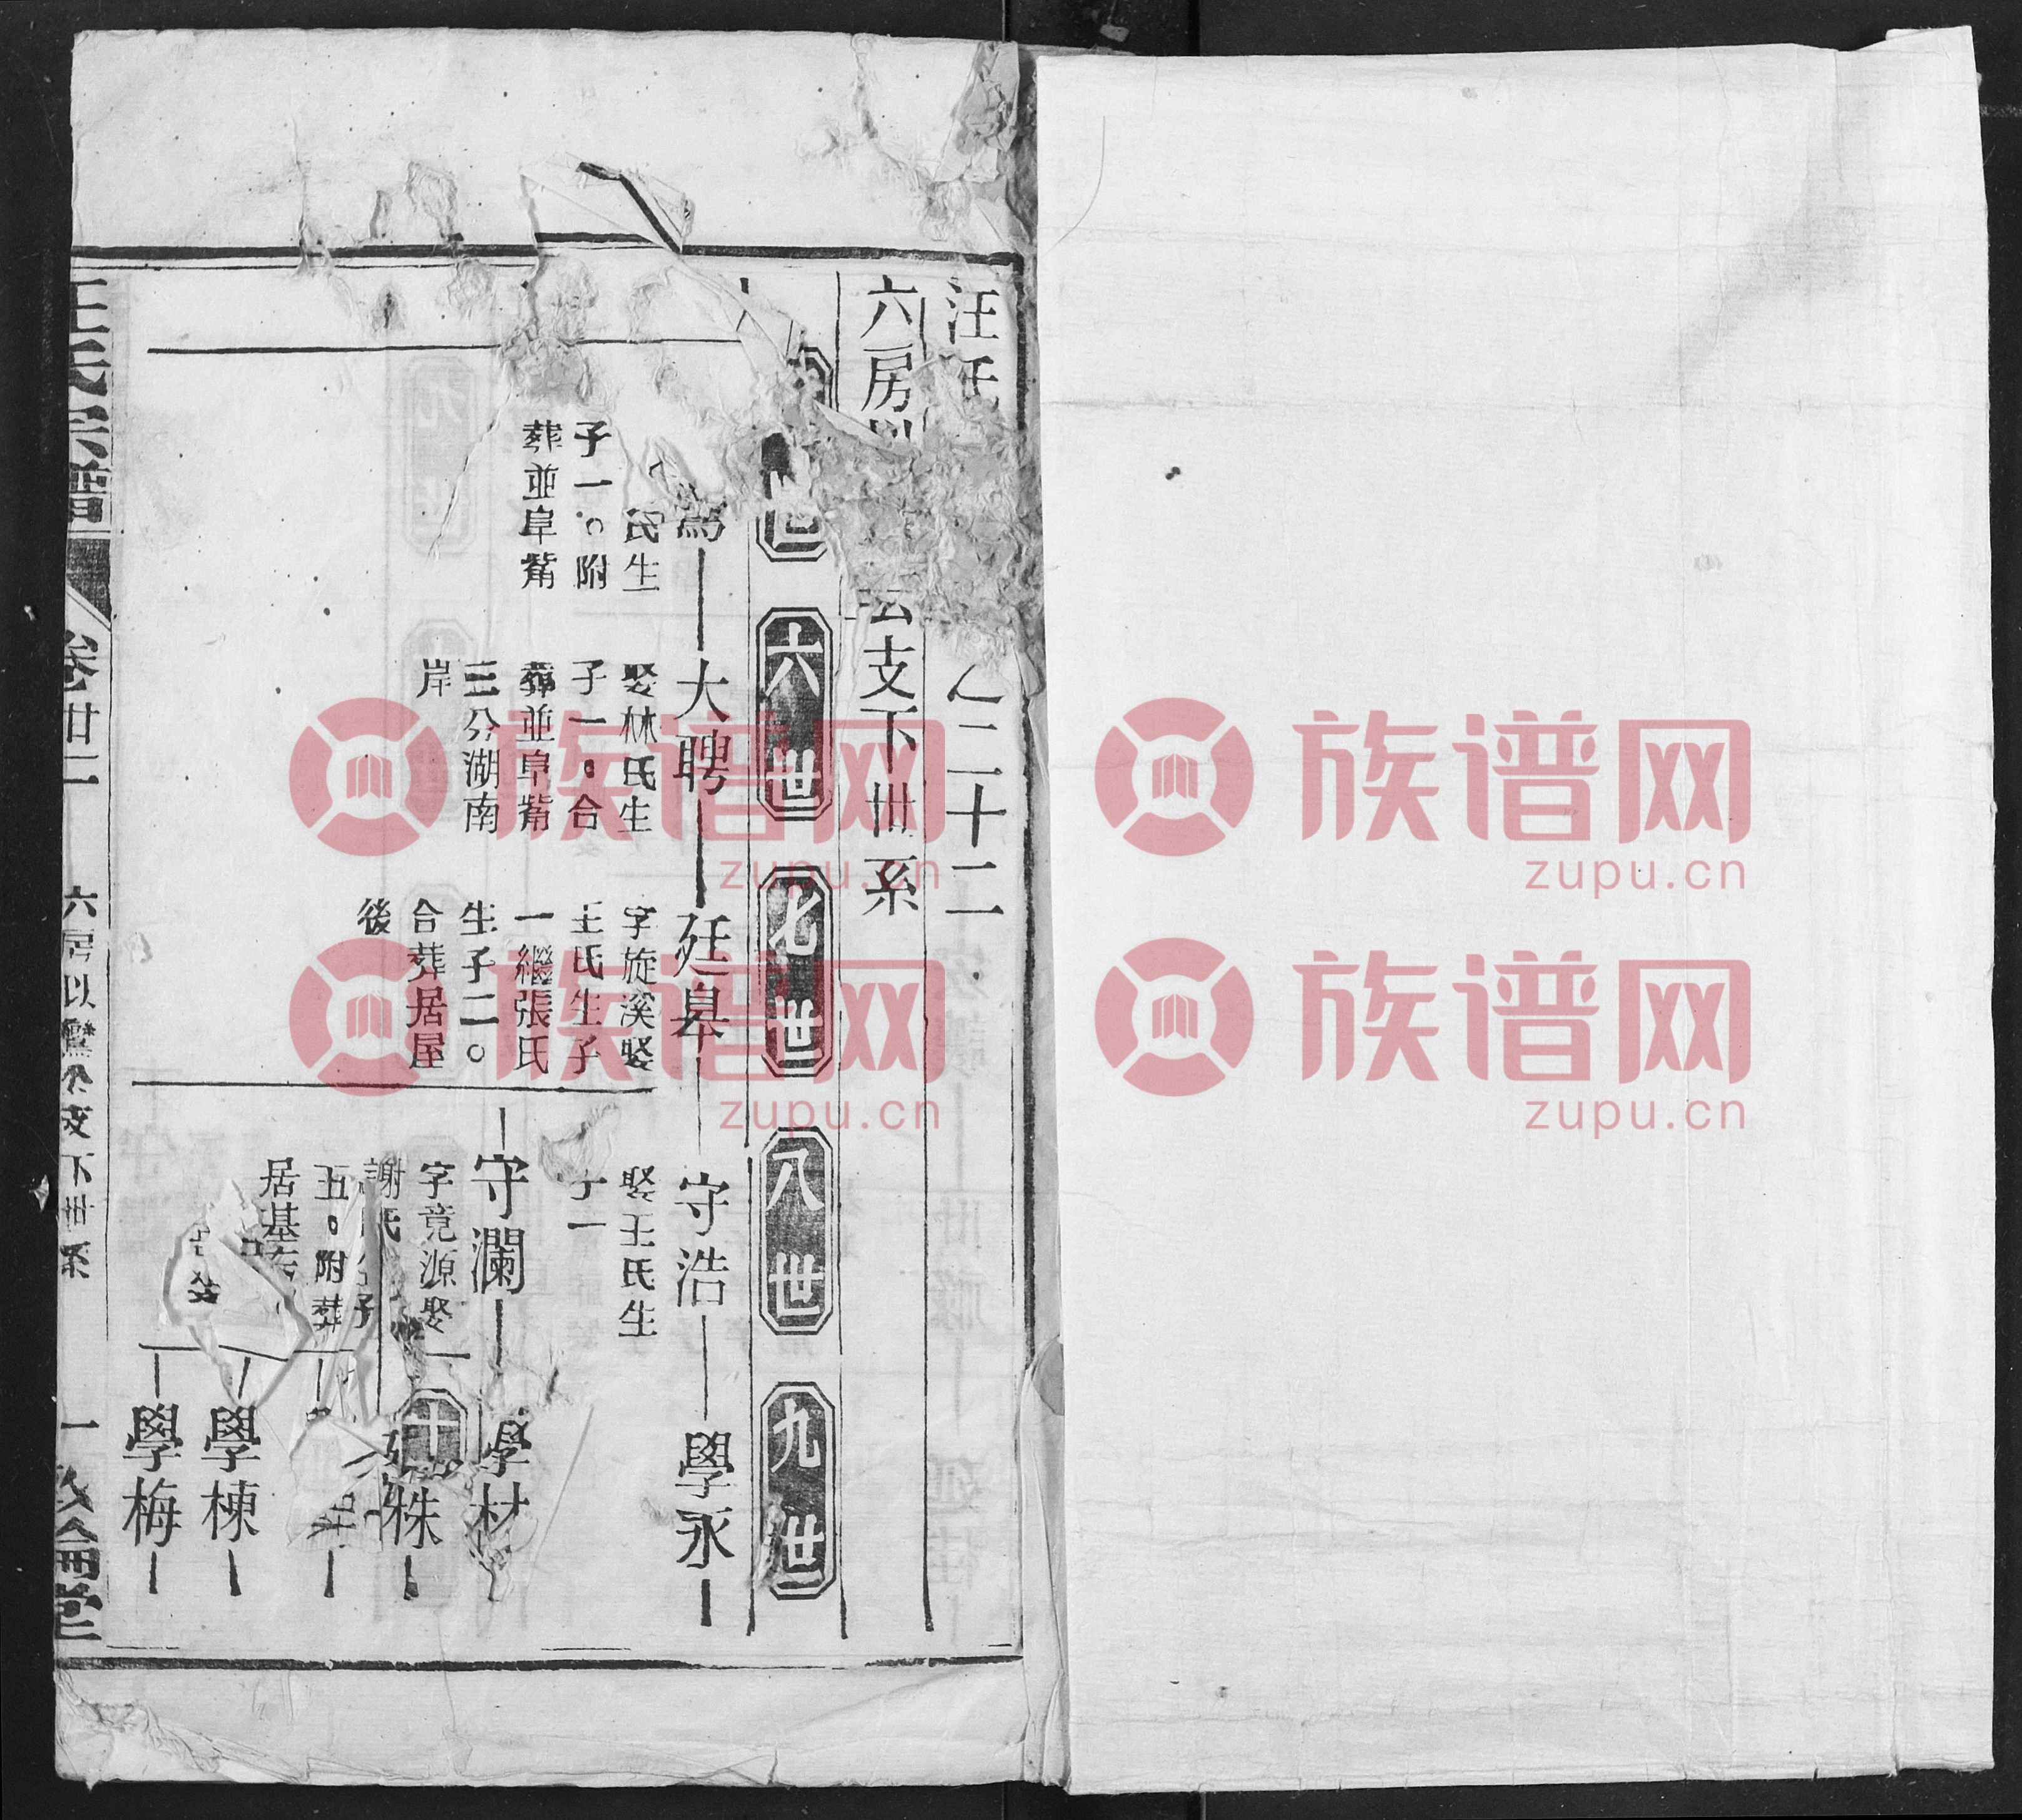 汪氏
二十二
六房以
公支下世系
世
六世
七世
八世
九世
大聘
廷皋
守浩
學永
氏生
子一。附
葬並阜觜
娶林氏生
子一。合
葬並阜觜
三分湖南
岸
字旋溪娶
王氏生子
一繼張氏
生子二。
合葬居屋
後
娶王氏生
子一
守瀾
學材
字竟源娶
謝氏
子
五。附葬
居基
十
株
學棟
學梅
汪氏宗譜
卷廿二
六房以鸞公支下世系
一
敘倫堂
族谱网
zupu.cn
族谱网
zupu.cn
族谱网
zupu.cn
族谱网
zupu.cn